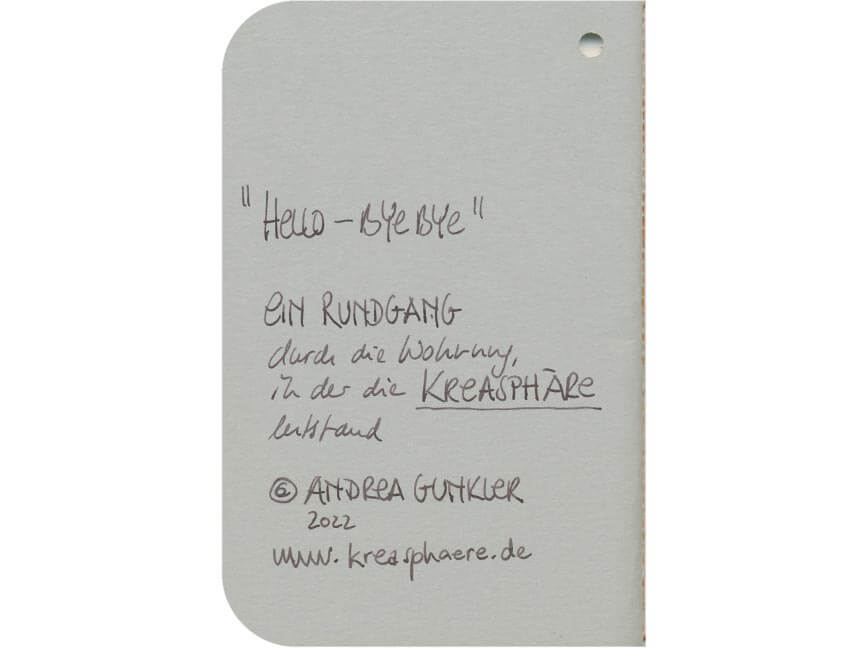 "Hello – Bye Bye"
EIN RUNDGANG
durch die Wohnung,
in der die KREASPHÄRE
entstand
© ANDREA GUNKLER
2022
www.kreasphaere.de